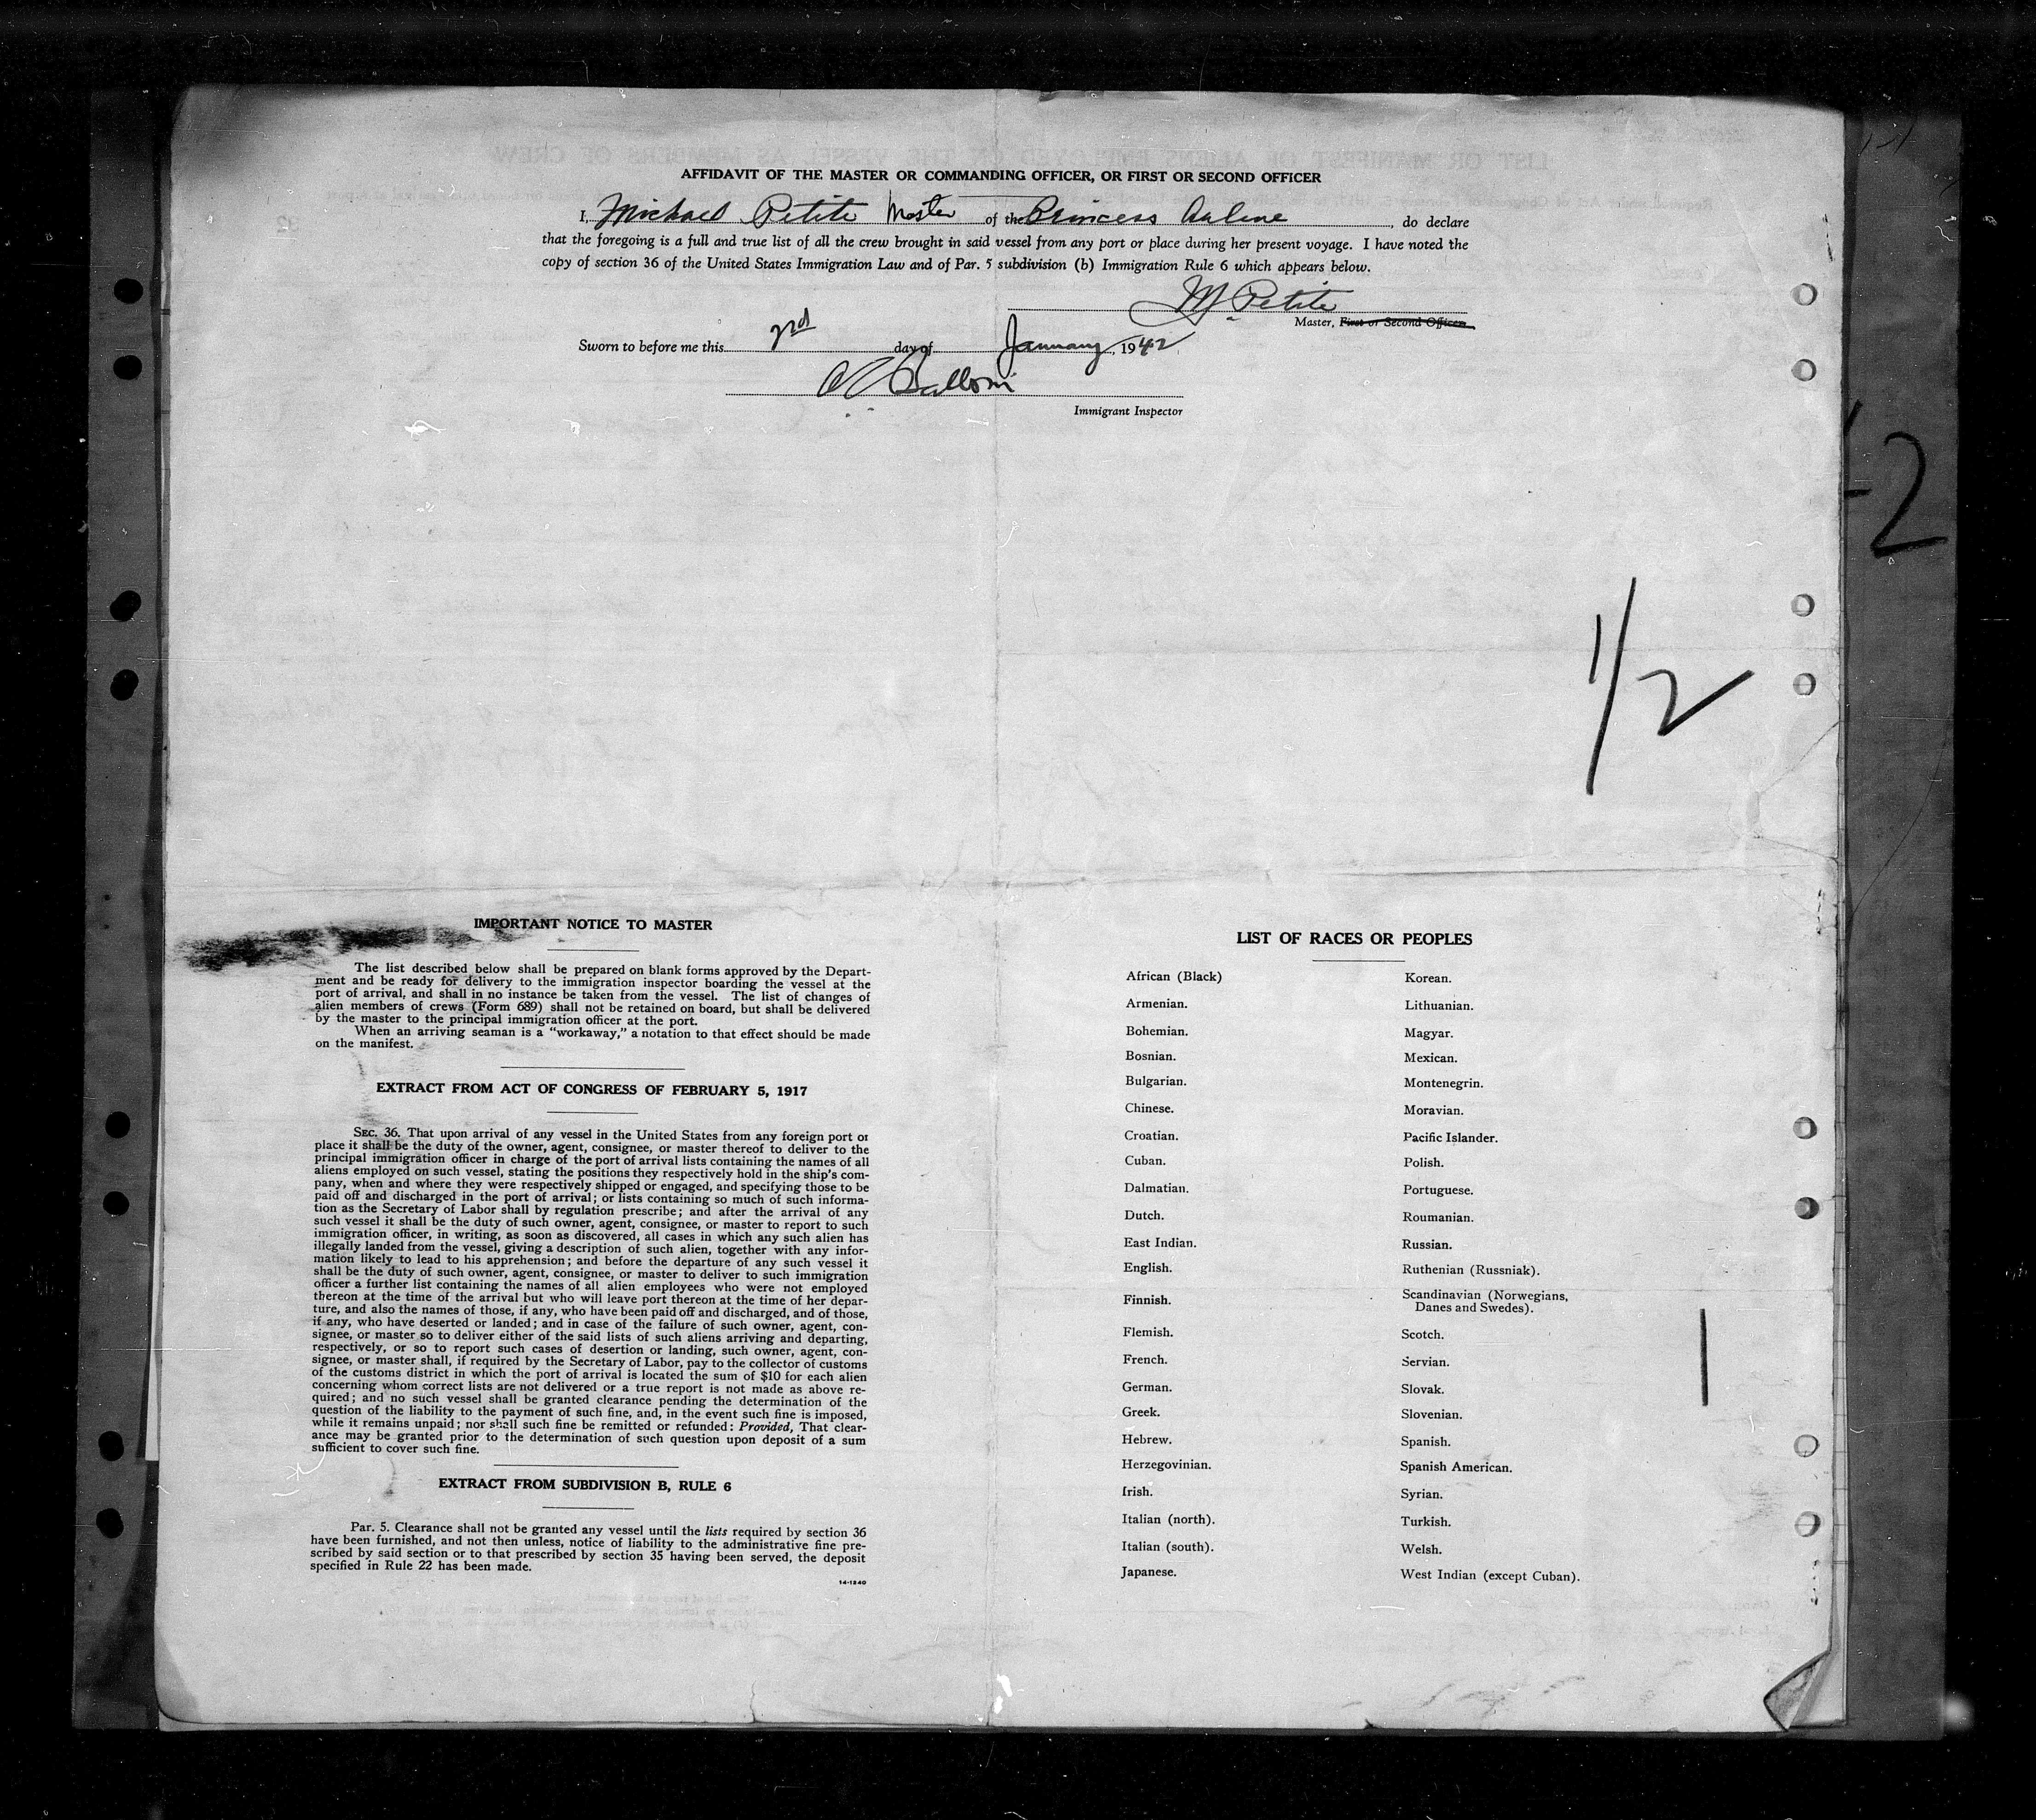 AFFIDAVIT OF THE MASTER OR COMMANDING OFFICER, OR FIRST OR SECOND OFFICER
I, Michael Petite Master of the Princess , do declare
that the foregoing is a full and true list of all the crew brought in said vessel from any port or place during her present voyage. I have noted the
copy of section 36 of the United States Immigration Law and of Par. 5 subdivision (b) Immigration Rule 6 which appears below.
M Petite
Master, First or Second Officer.
Sworn to before me this 2nd day of January, 1942
Immigrant Inspector
-2
1/2
IMPORTANT NOTICE TO MASTER
The list described below shall be prepared on blank forms approved by the Depart-
ment and be ready for delivery to the immigration inspector boarding the vessel at the
port of arrival, and shall in no instance be taken from the vessel. The list of changes of
alien members of crews (Form 689) shall not be retained on board, but shall be delivered
by the master to the principal immigration officer at the port.
When an arriving seaman is a "workaway," a notation to that effect should be made
on the manifest.
EXTRACT FROM ACT OF CONGRESS OF FEBRUARY 5, 1917
SEC. 36. That upon arrival of any vessel in the United States from any foreign port or
place it shall be the duty of the owner, agent, consignee, or master thereof to deliver to the
principal immigration officer in charge of the port of arrival lists containing the names of all
aliens employed on such vessel, stating the positions they respectively hold in the ship's com-
pany, when and where they were respectively shipped or engaged, and specifying those to be
paid off and discharged in the port of arrival; or lists containing so much of such informa-
tion as the Secretary of Labor shall by regulation prescribe; and after the arrival of any
such vessel it shall be the duty of such owner, agent, consignee, or master to report to such
immigration officer, in writing, as soon as discovered, all cases in which any such alien has
illegally landed from the vessel, giving a description of such alien, together with any infor-
mation likely to lead to his apprehension; and before the departure of any such vessel it
shall be the duty of such owner, agent, consignee, or master to deliver to such immigration
officer a further list containing the names of all alien employees who were not employed
thereon at the time of the arrival but who will leave port thereon at the time of her depar-
ture, and also the names of those, if any, who have been paid off and discharged, and of those,
if any, who have deserted or landed; and in case of the failure of such owner, agent, con-
signee, or master so to deliver either of the said lists of such aliens arriving and departing,
respectively, or so to report such cases of desertion or landing, such owner, agent, con-
signee, or master shall, if required by the Secretary of Labor, pay to the collector of customs
of the customs district in which the port of arrival is located the sum of $10 for each alien
concerning whom correct lists are not delivered or a true report is not made as above re-
quired; and no such vessel shall be granted clearance pending the determination of the
question of the liability to the payment of such fine, and, in the event such fine is imposed,
while it remains unpaid; nor shall such fine be remitted or refunded: Provided, That clear-
ance may be granted prior to the determination of such question upon deposit of a sum
sufficient to cover such fine.
EXTRACT FROM SUBDIVISION B, RULE 6
Par. 5. Clearance shall not be granted any vessel until the lists required by section 36
have been furnished, and not then unless, notice of liability to the administrative fine pre-
scribed by said section or to that prescribed by section 35 having been served, the deposit
specified in Rule 22 has been made.
14-1240
LIST OF RACES OR PEOPLES
African (Black)
Armenian.
Bohemian.
Bosnian.
Bulgarian.
Chinese.
Croatian.
Cuban.
Dalmatian.
Dutch.
East Indian.
English.
Finnish.
Flemish.
French.
German.
Greek.
Hebrew.
Herzegovinian.
Irish.
Italian (north).
Italian (south).
Japanese.
Korean.
Lithuanian.
Magyar.
Mexican.
Montenegrin.
Moravian.
Pacific Islander.
Polish.
Portuguese.
Roumanian.
Russian.
Ruthenian (Russniak).
Scandinavian (Norwegians,
Danes and Swedes).
Scotch.
Servian.
Slovak.
Slovenian.
Spanish.
Spanish American.
Syrian.
Turkish.
Welsh.
West Indian (except Cuban).